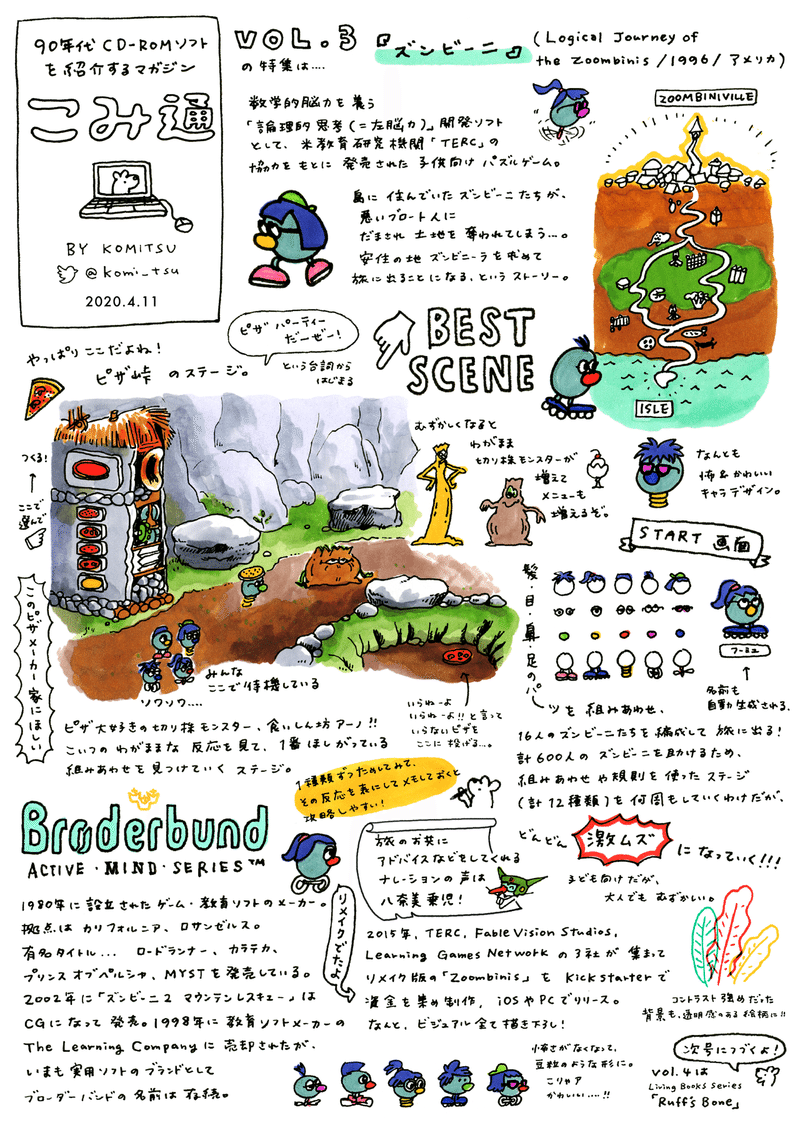 90年代 CD-ROMソフト
を紹介するマガジン
こみ通
BY KOMITSU
@komi_tsu
2020.4.11
VOL.3
の特集は....
『ズンビーニ』
(Logical Journey of
the Zoombinis/1996/アメリカ)
数学的脳力を養う
「論理的思考(=左脳力)」開発ソフト
として、米教育研究機関「TERC」の
協力をもとに発売された子供向けパズルゲーム。
島に住んでいたズンビーニたちが、
悪いブロート人に
だまされ土地を奪われてしまう...。
安住の地ズンビーニーラを求めて
旅に出ることになる、というストーリー。
ZOOMBINIVILLE
ISLE
BEST
SCENE
やっぱりここだよね!
ピザ峠 のステージ。
ピザパーティー
だーぜー!
という台詞から
はじまる
つくる!
ここで
選んで
このピザメーカー家にほしい
むずかしくなると
わがまま
切り株モンスターが
増えて
メニューも
増えるぞ。
なんとも
怖&かわいい
キャラデザイン。
START 画面
髪・目・鼻・足のパー
ツを組みあわせ、
16人のズンビーニたちを編成して旅に出る!
計600人のズンビーニを助けるため、
組みあわせや規則を使ったステージ
(計12種類)を何周もしていくわけだが、
どんどん
激ムズ
になっていく!!!
子ども向けだが、
大人でもむずかしい。
名前も
自動生成される。
ソワソワ....
みんな
ここで待機している
いらねーよ
いらねーよ!!と言って
いらないピザを
ここに投げる...。
ピザ大好きの切り株モンスター、食いしん坊アーノ!!
こいつのわがままな反応を見て、1番ほしがっている
組みあわせを見つけていくステージ。
1種類ずつためしてみて、
その反応を表にしてメモしておくと
攻略しやすい!
Brøderbund
ACTIVE・MIND・SERIES™
1980年に設立されたゲーム・教育ソフトのメーカー。
拠点はカリフォルニア、ロサンゼルス。
有名タイトル... ロードランナー、カラテカ、
プリンスオブペルシャ、MYSTを発売している。
2002年に「ズンビーニ2 マウンテンレスキュー」は
CGになって発売。1998年に教育ソフトメーカーの
The Learning Companyに売却されたが、
いまも実用ソフトのブランドとして
ブローダーバンドの名前は存続。
旅のお共に
アドバイスなどをしてくれる
ナレーションの声は
八奈美乗児!
リメイクでたよ
2015年、TERC, FableVision Studios,
Learning Games Networkの3社が集まって
リメイク版の「Zoombinis」をKickstarterで
資金を集め制作、iOSやPCでリリース。
なんと、ビジュアル全て描き下ろし!
怖さがなくなって、
豆粒のような形に。
こりゃア
かわいい....!!
コントラスト強めだった
背景も、透明感のある絵柄に!!
次号につづくよ!
vol.4は
Living Books Series
「Ruff's Bone」